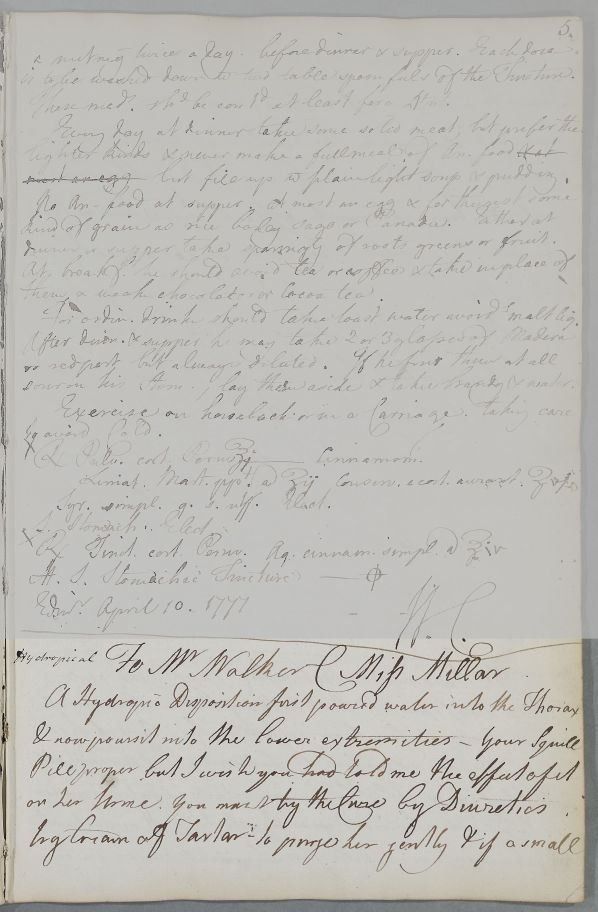 5.
a nutmeg twice a day. before dinner & supper. Each dose
is to be washed down w two table spoonfuls of the Tincture.
These med.s sh.d be cont.d at least for a
Every day at dinner take some solid meat, but prefer the
lighter kinds & never make a full meal of An. food & at
most an egg but fill up w plain light soup & pudding.
No An. food at supper. at most an egg & for the rest some
kind of grain as rice barley sago or Panada. either at
dinner or supper take sparingly of roots greens or fruit.
At breakf.t he should avoid tea or coffee & take in place of
them, a weak chocolate or Cocoa tea.
For ordin. drink should take toast water avoid malt liq.
After dinn. & supper he may take 2 or 3 glasses of Madeira
or red port but always diluted. If he finds them at all
sour on his Stom., lay them aside & take brandy & water.
Exercise on horseback or in a Carriage. taking care
to avoid Cold.
℞ Pulv. cort. Peruv. ℥j Cinnamom.
Limat. Mart. ppt. a ʒij Conserv. e cort. aurant.
Syr. simpl. q. s. uff. Elect.
S. Stomach. Elect.
℞ Tinct. cort. Peruv. Aq. cinnam. simpl. a ℥iv
M. S. Stomachic Tincture
Edin.r April 10. 1777
W. C
Hydropical To Mr Walker Miss Millar
A Hydropic Disposition first poured water into the Thorax
& now pours it into the lower extremities – Your Squill
Pill proper but I wish you had told me the effect of it
on her Urine. You must try the Cure by Diuretics
by Cream of Tartar – to purge her gently & if a small